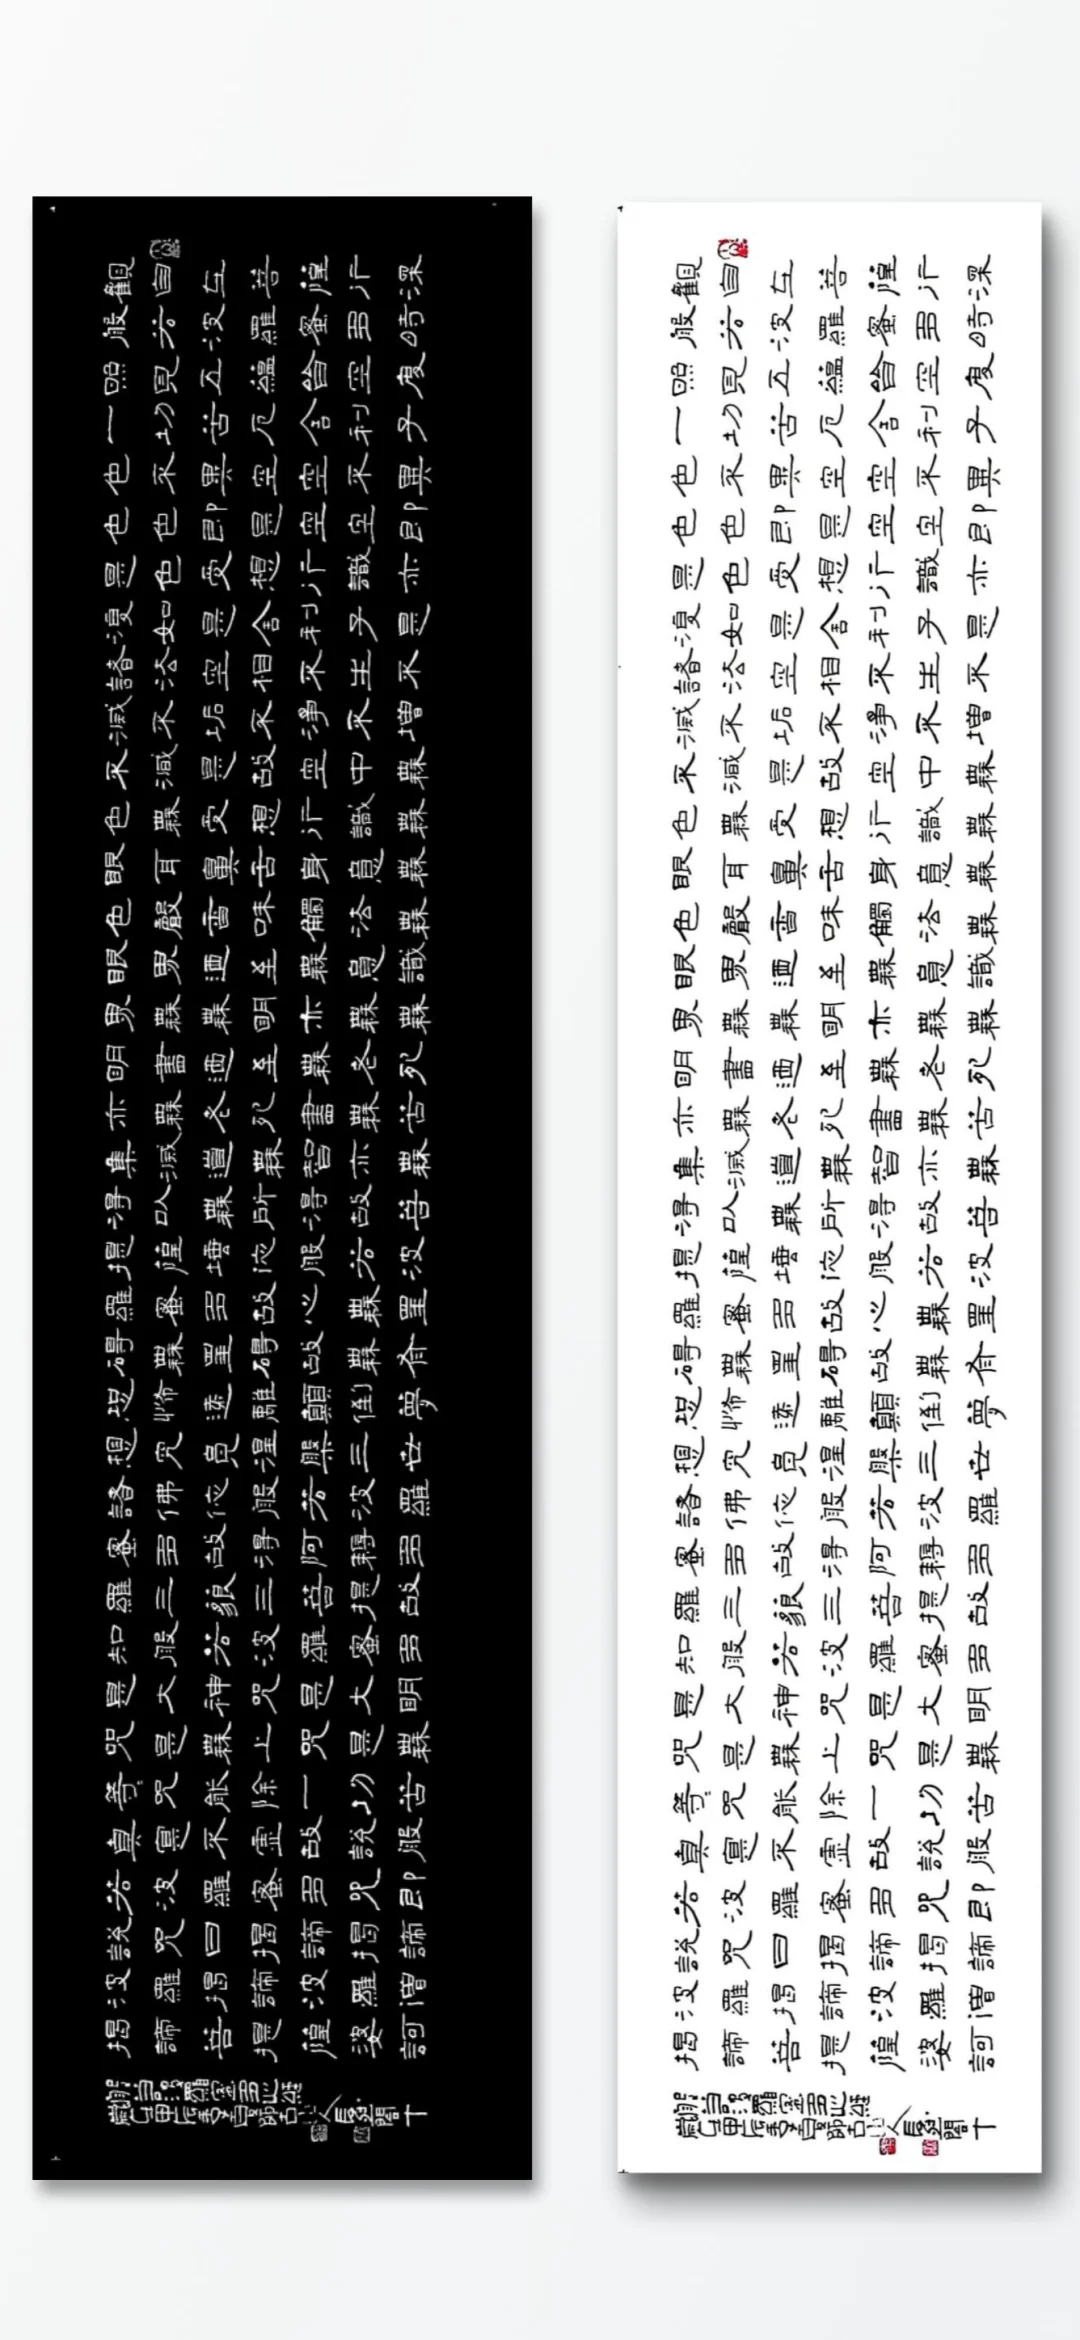 觀自在菩薩行深
般若波羅蜜多時
照見五蘊皆空度
一切苦厄舍利子
色不異空空不異
色色即是空空即
是色受想行識亦
復如是舍利子是
諸法空相不生不
滅不垢不淨不增
不減是故空中無
色無受想行識無
眼耳鼻舌身意無
色聲香味觸法無
眼界迺至無意識
界無無明亦無無
明盡迺至無老死
亦無老死盡無苦
集滅道無智亦無
得以無所得故菩
提薩埵依般若波
羅蜜多故心無罣
礙無罣礙故無有
恐怖遠離顛倒夢
想究竟涅槃三世
諸佛依般若波羅
蜜多故得阿耨多
羅三藐三菩提故
知般若波羅蜜多
是大神咒是大明
咒是無上咒是無
等〻咒能除一切苦
真實不虛故說般
若波羅蜜多咒即
說咒曰揭諦揭諦
波羅揭諦波羅僧
揭諦菩提薩婆訶
觀自在菩薩行深
般若波羅蜜多時
照見五蘊皆空度
一切苦厄舍利子
色不異空空不異
色色即是空空即
是色受想行識亦
復如是舍利子是
諸法空相不生不
滅不垢不淨不增
不減是故空中無
色無受想行識無
眼耳鼻舌身意無
色聲香味觸法無
眼界迺至無意識
界無無明亦無無
明盡迺至無老死
亦無老死盡無苦
集滅道無智亦無
得以無所得故菩
提薩埵依般若波
羅蜜多故心無罣
礙無罣礙故無有
恐怖遠離顛倒夢
想究竟涅槃三世
諸佛依般若波羅
蜜多故得阿耨多
羅三藐三菩提故
知般若波羅蜜多
是大神咒是大明
咒是無上咒是無
等〻咒能除一切苦
真實不虛故說般
若波羅蜜多咒即
說咒曰揭諦揭諦
波羅揭諦波羅僧
揭諦菩提薩婆訶